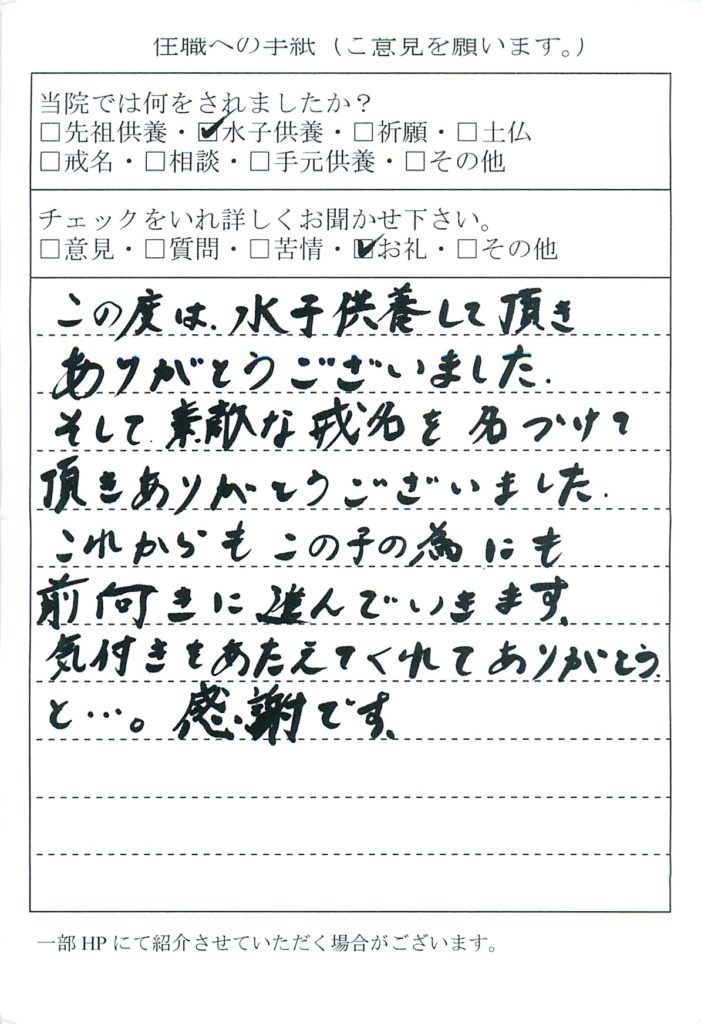 住職への手紙（ご意見を願います。）
当院では何をされましたか？
□先祖供養・☑水子供養・□祈願・□土仏
□戒名・□相談・□手元供養・□その他
チェックをいれ詳しくお聞かせ下さい。
□意見・□質問・□苦情・☑お礼・□その他
この度は、水子供養して頂き
ありがとうございました.
そして、素敵な戒名を名づけて
頂きありがとうございました.
これからもこの子の為にも
前向きに進んでいきます。
気付きをあたえてくれてありがとう
と…。感謝です。
一部HPにて紹介させていただく場合がございます。